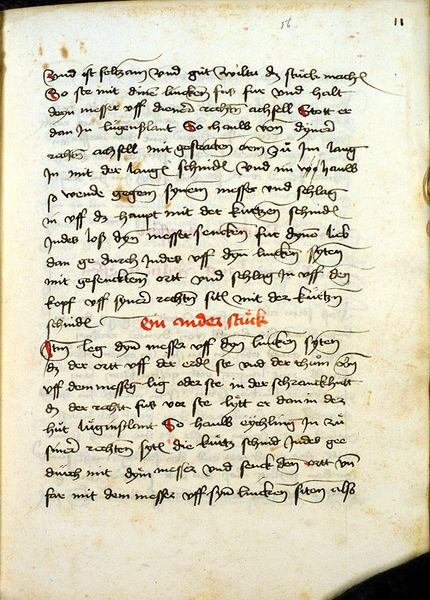 56 11
Vnd ist seltzam Vnd güt wiltu dz stuck mach
So ste mit dinē lincken fus fur vnd halt
deyn messer vff diener rechtē achsell Stett er
dan In lügenslant So hauls von dyner
rechtē achsell mit gestracten arm zü Im lang
In mit der lange schnid Vnd im
so wende gegem synem messer vnd schlag
In vff dz haupt mit der kurtzen schnid
Indes los dyn messer sencken fur dyne lieb
dan ge durch Indes vff dyn lincken syten
mit gesencktem ortt vnd schlag In vff den
kopf vff syner rechtē sitē mit der kurtzn
schnid ein ander stuck
Itm leg dyn messer vff dyn lincken syten
dz der ortt vff der erdē ste vnd der thum oben
vff dem messer lig oder ste in der schranckhutt
dz der recht fus vor ste lytt er dan in der
hut lüginslant So hauls In zü
siner rechten sytē die kurtz schnid Indes gee
dürch mit dym messer vnd senck den ortt vn
far mit dem messer vff syn lincken siten als